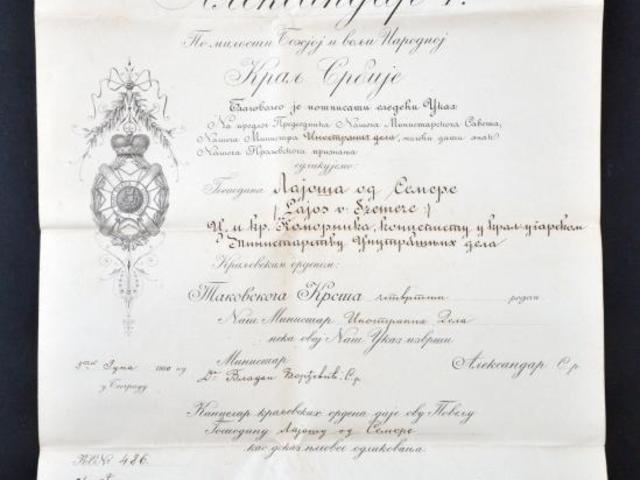 Александар I.
По милости Божјој и вољи Народној
Краљ Србије
Благоволео је потписати следећи Указ
На предлог Председника Нашега Министарског Савета,
Нашега Министра Иностраних дела, знак
Нашега Краљевског признања
одликујемо:
Господина Лајоша од Семере
(Lajos v. Szemere)
Ц. и кр. Коморника, концеписту у краљ. угарском
Министарству Унутрашњих дела
Краљевским орденом:
Таковскога Крста четвртим редом
Наш Министар Иностраних Дела
нека овај Наш Указ изврши
5ог Јуна год
у Београду
Министар
Др Владан Ђорђевић С.р.
Александар С.р.
Канцелар краљевских ордена даје ову Повељу
Господину Лајошу од Семере
као доказ његовог одликовања
№ 486